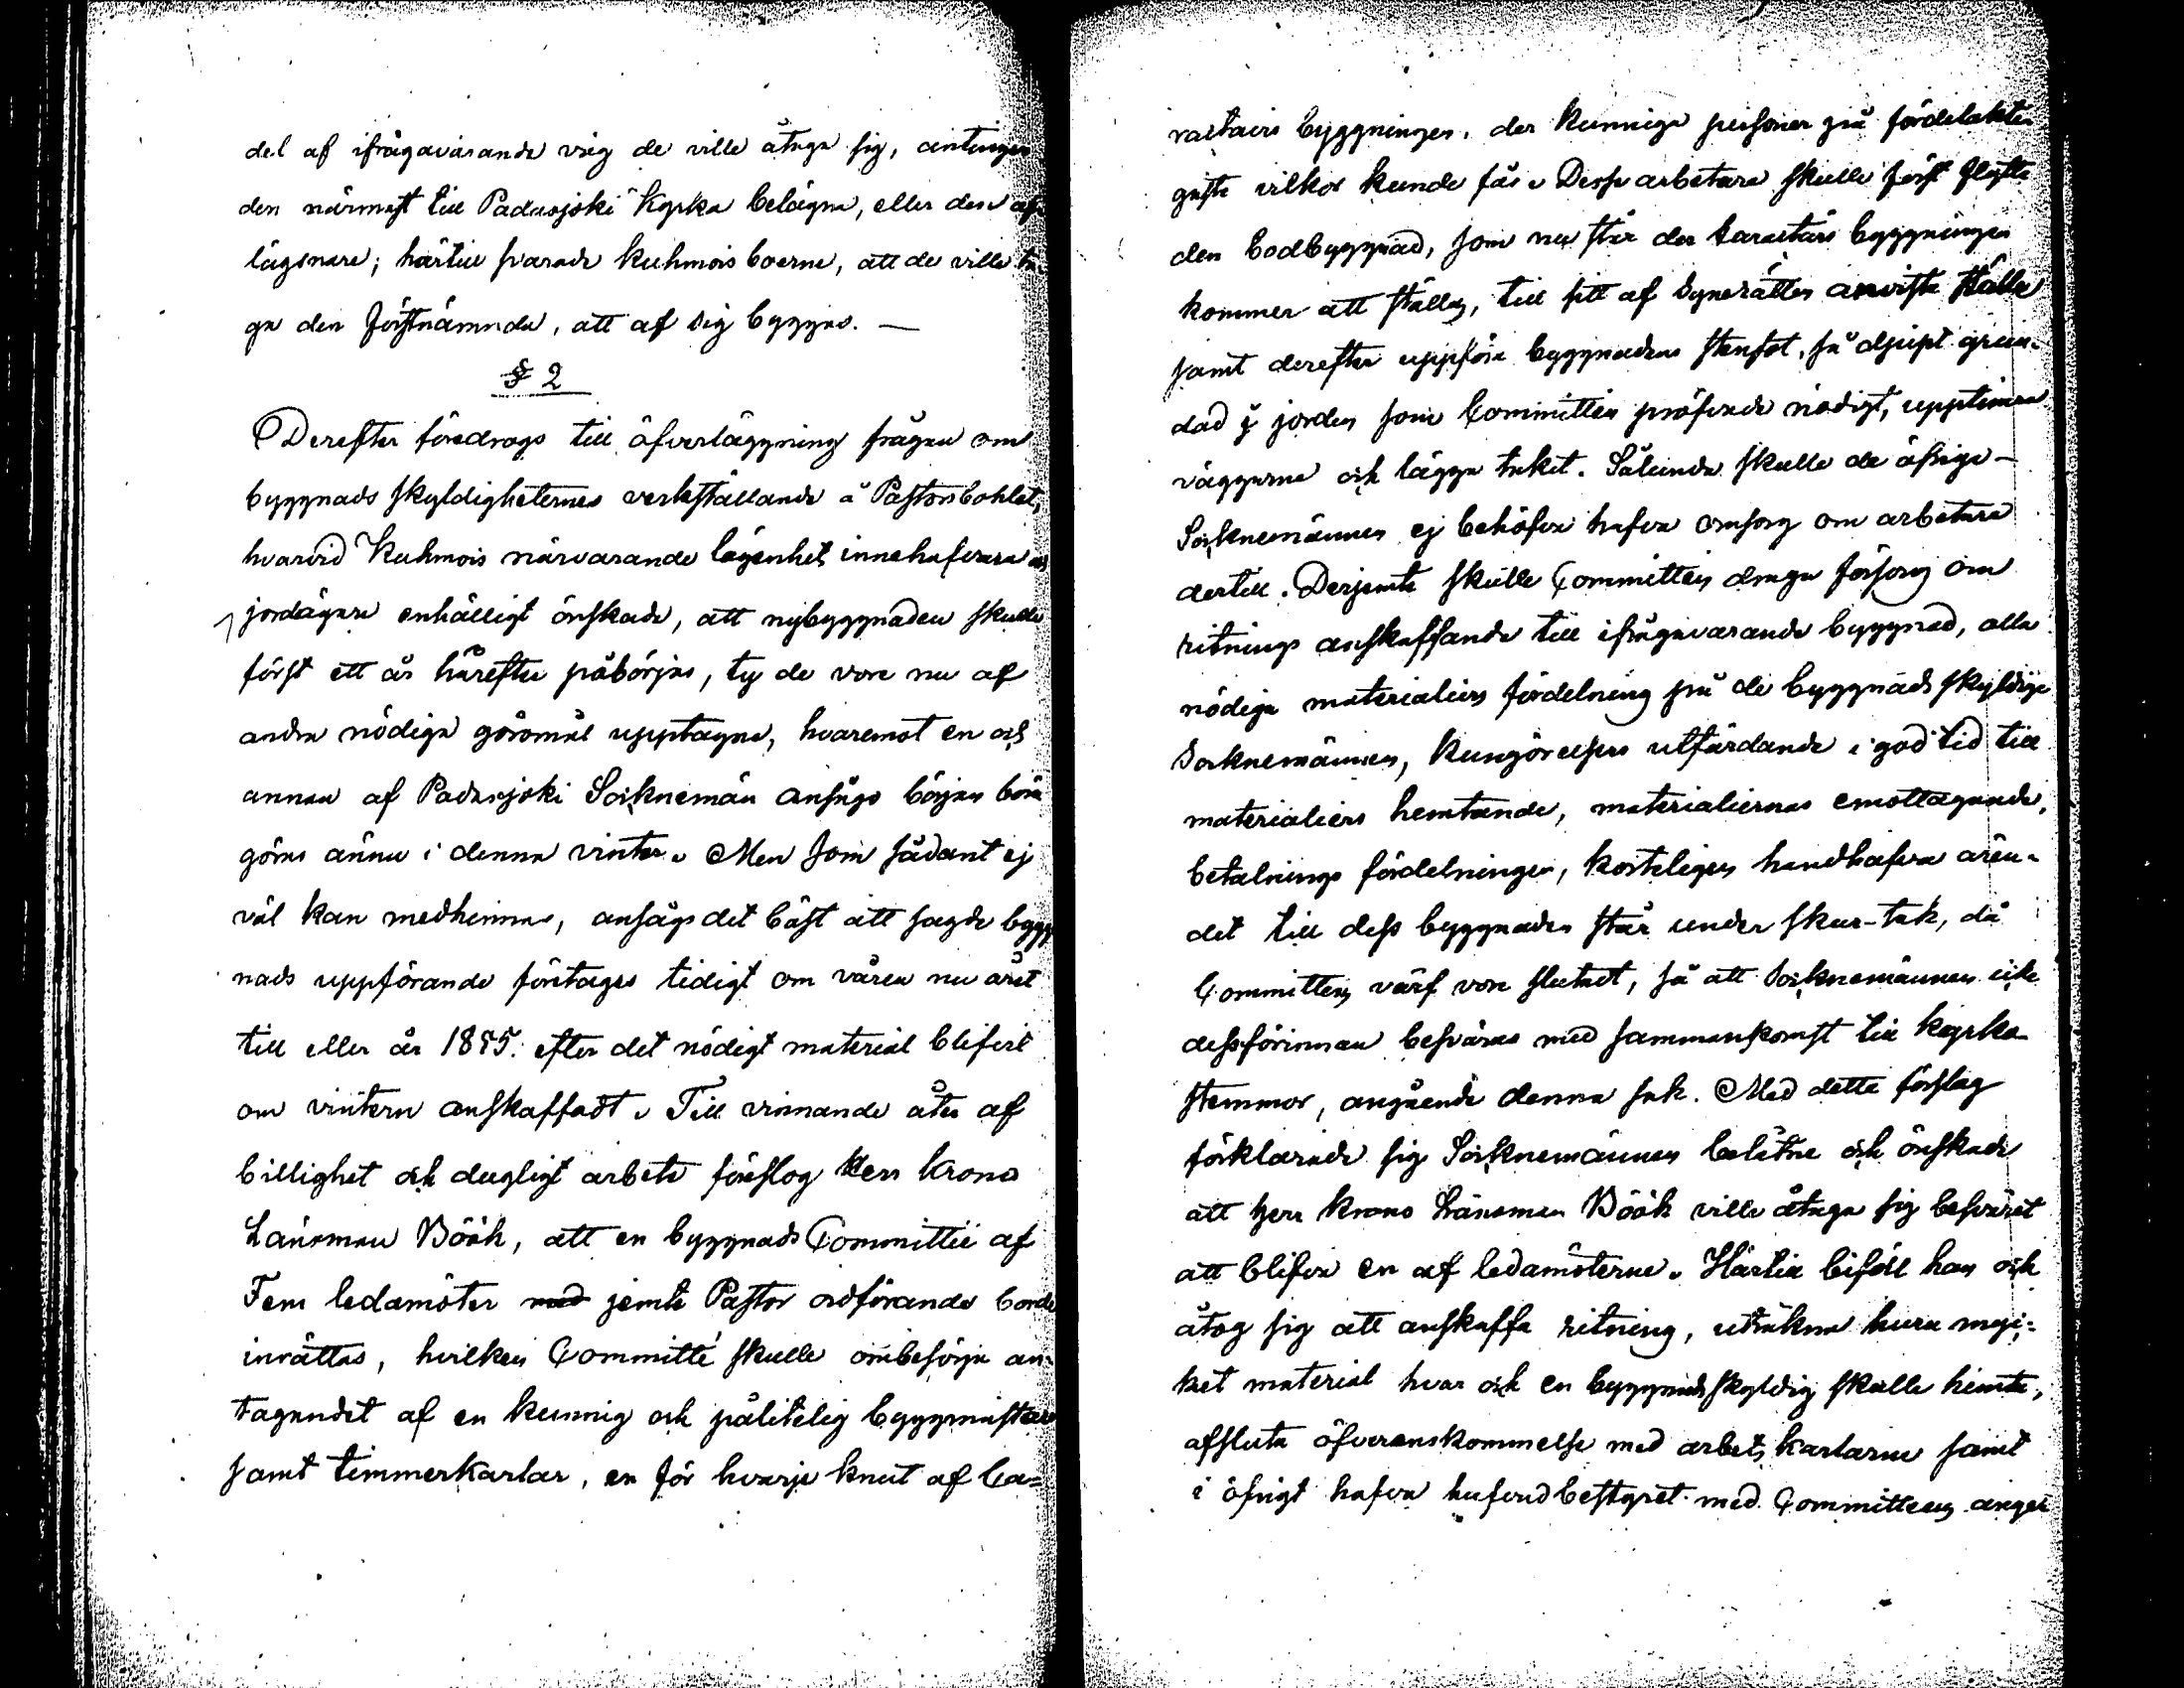 del af ifrågavarande väg de ville åtaga sig, antingen
den närmast till Padasjoki Kyrka belägna, eller den af-
lägsnare; härtill svarade Kuhmois boerne, att de ville ta-
ga den förstnämnda, att af sig byggas. —
§ 2
Derefter föredrogs till öfverläggning frågan om
byggnads skyldigheternes verkställande å Pastorsbohlet,
hvarvid Kuhmois närvarande lägenhets innehafvare och
jordägare enhälligt önskade, att nybyggnaden skulle
först ett år härefter påbörjas, ty de vore nu af
andra nödiga göromål upptagne, hvaremot en och
annan af Padasjoki Socknemän ansågo början böra
göras ännu i denna vinter. Men som sådant ej
väl kan medhinnas, ansågs det bäst att sagde bygg-
nads uppförande företages tidigt om våren nu året
till eller år 1875. efter det nödigt material blifvit
om vintern anskaffadt. Till vinnande åter af
billighet och dugligt arbete föreslog Herr Krono
Länsman Böök, att en byggnads Committée af
Fem ledamöter med jemte Pastor ordförande borde
inrättas, hvilken Committé skulle ombesörja an-
tagandet af en kunnig och pålitelig byggmästare
samt timmerkarlar, en för hvarje knut af ka-
raktairs byggningen, der kunniga personer på fördelakti-
gaste vilkor kunde fås. Desse arbetare skulle först flytta
den bodbyggnad, som nu står der karaktärs byggningen
kommer att ställas, till sitt af Synerätten anviste ställe
samt derefter uppföra byggnadens stenfot, så djupt grun-
dad i jorden som Committén pröfvade nödigt, upptimra
väggarne och lägga taket. Sålunda skulle de öfrige —
Socknemännen ej behöfva hafva omsorg om arbetare
dertill. Derjemte skulle Committén draga försorg om
ritnings anskaffande till ifrågavarande byggnad, alla
nödiga materialiers fördelning på de byggnads skyldige
Socknemännen, Kungörelsers utfärdande i god tid till
materialiers hemtande, materialiernas emottagande,
betalnings fördelningen, korteligen handhafva ären-
det till dess byggnaden står under skur-tak, då
Committéns värf vore slutadt, så att Socknemännen icke
dessförinnan besväras med sammankomst till kyrko
stemmor, angående denna sak. Med detta förslag
förklarade sig Socknemännen belåtne och önskade
att herr Krono Länsman Böök ville åtaga sig besväret
att blifva en af ledamöterne. Härtill biföll han och
åtog sig att anskaffa ritning, uträkna huru myc-
ket material hvar och en byggnadsskyldig skulle hemta,
afsluta öfverenskommelse med arbets karlarne samt
i öfrigt hafva hufvudbestyret med Committéens ange-